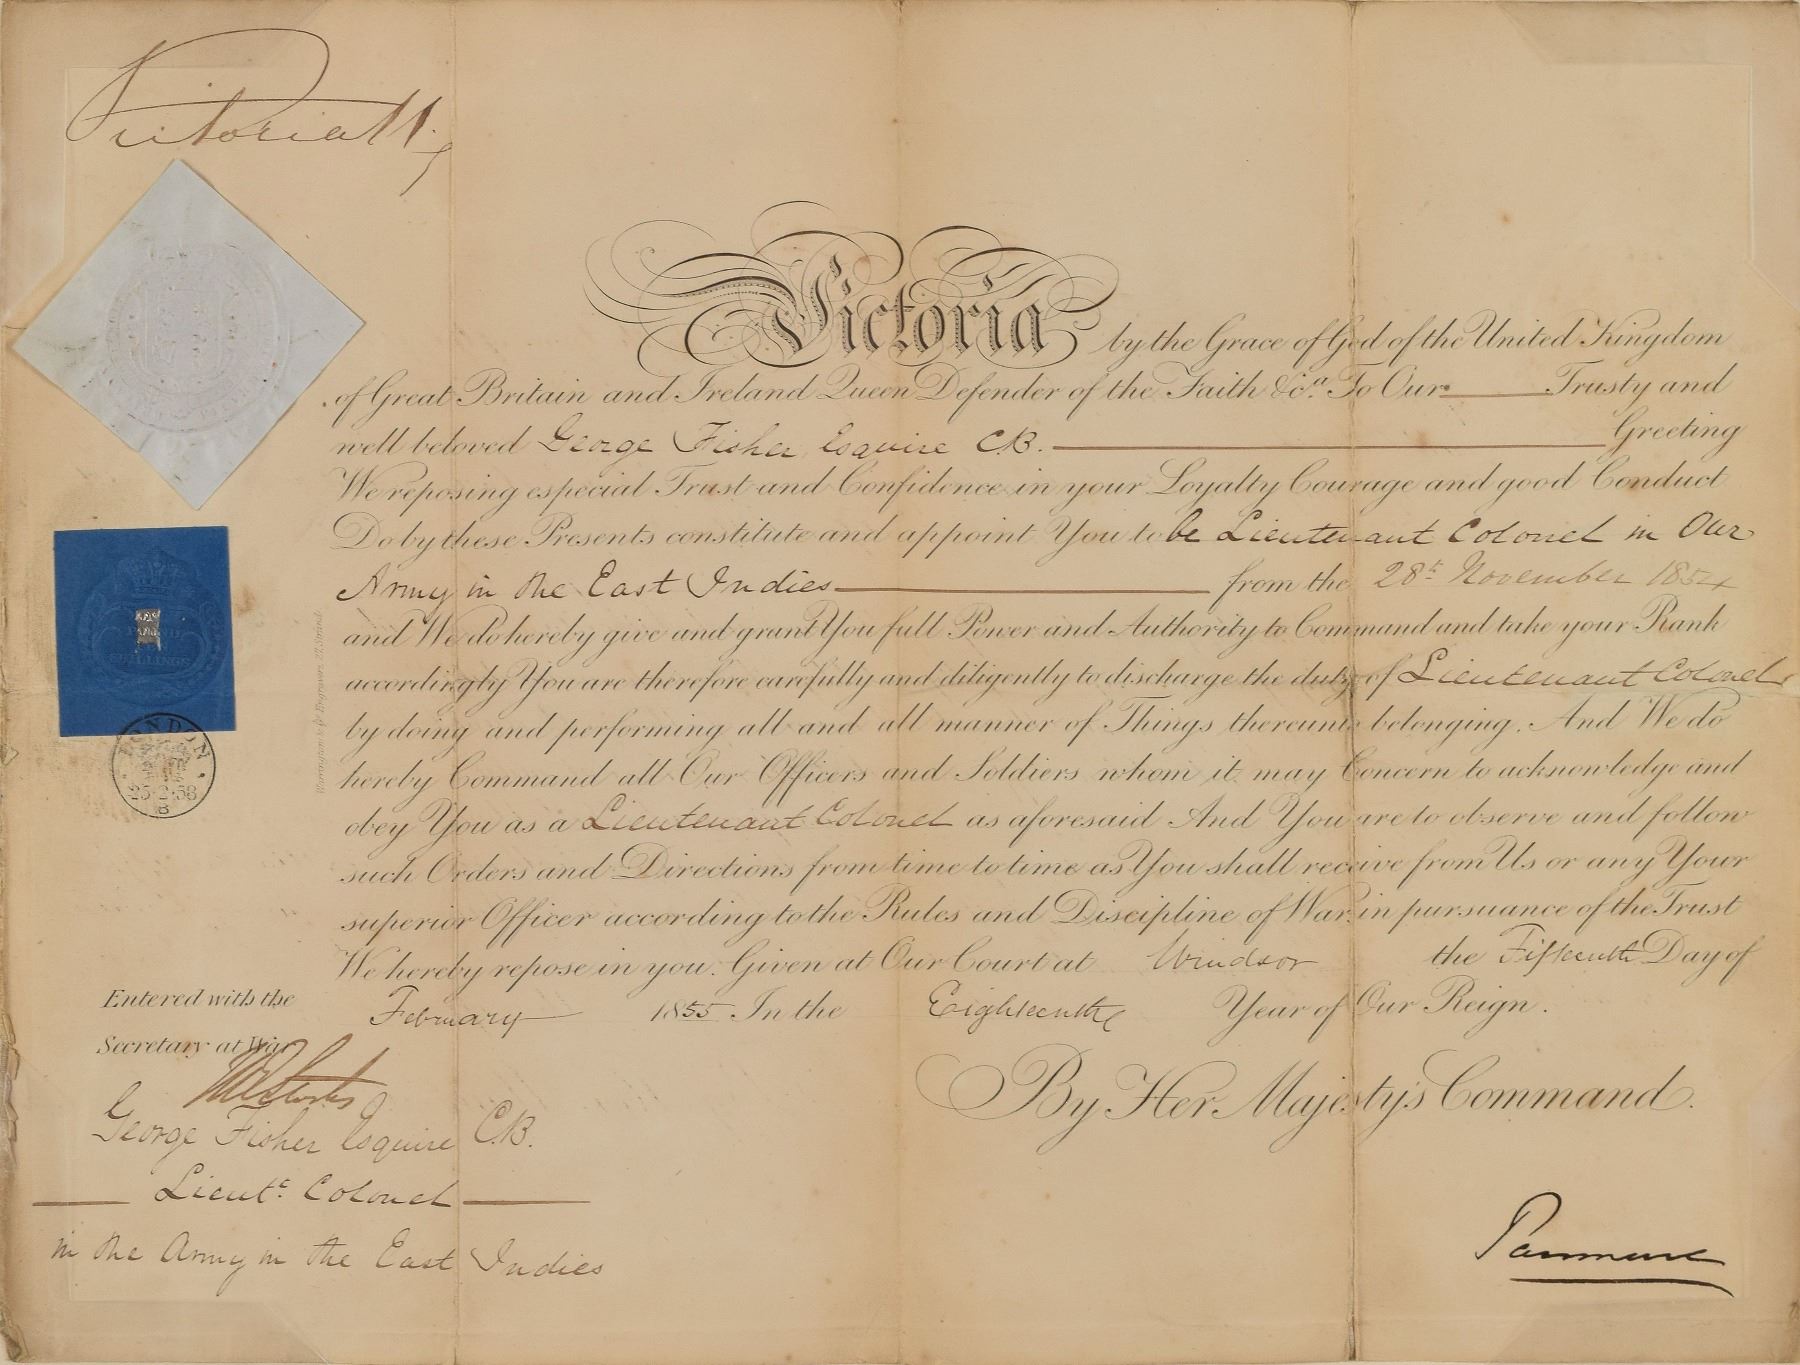 Victoria R.
Victoria by the Grace of God of the United Kingdom
of Great Britain and Ireland Queen Defender of the Faith &c.a To Our Trusty and
well beloved George Fisher Esquire C.B. Greeting
We reposing especial Trust and Confidence in your Loyalty Courage and good Conduct
Do by these Presents constitute and appoint You to be Lieutenant Colonel in Our
Army in the East Indies from the 28th November 1854
and We do hereby give and grant You full Power and Authority to Command and take your Rank
accordingly You are therefore carefully and diligently to discharge the duty of Lieutenant Colonel
by doing and performing all and all manner of Things thereunto belonging. And We do
hereby Command all Our Officers and Soldiers whom it may Concern to acknowledge and
obey You as a Lieutenant Colonel as aforesaid And You are to observe and follow
such Orders and Directions from time to time as You shall receive from Us or any Your
superior Officer according to the Rules and Discipline of War in pursuance of the Trust
We hereby repose in you. Given at Our Court at Windsor the Fifteenth Day of
February 1855 In the Eighteenth Year of Our Reign.
By Her Majesty's Command.
Panmure
SHILLINGS
LONDON
B
Entered with the
Secretary at War
George Fisher Esquire C.B.
Lieut. Colonel
in the Army in the East Indies